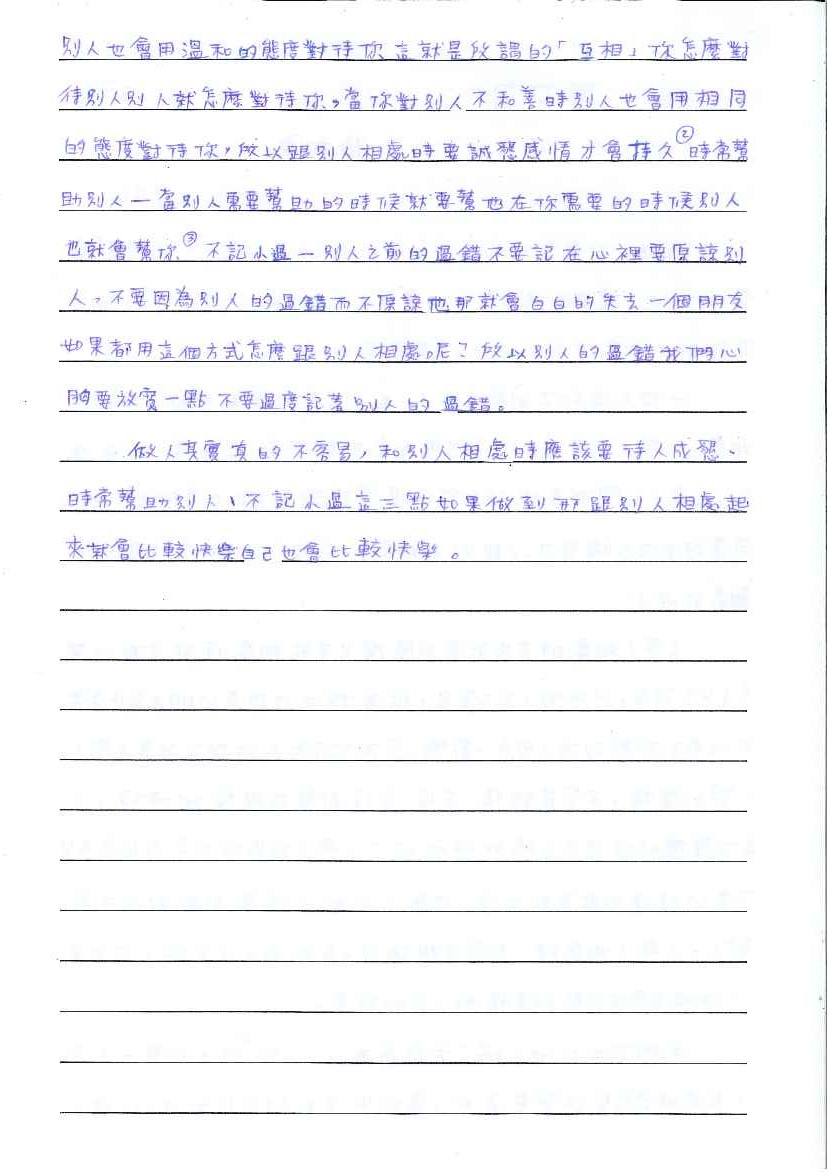 別人也會用溫和的態度對待你這就是所謂的「互相」你怎麼對
待別人別人就怎麼對待你。當你對別人不和善時別人也會用相同
的態度對待你，所以跟別人相處時要誠懇感情才會持久②時常幫
助別人－當別人需要幫助的時候就要幫他在你需要的時候別人
也就會幫你③不記小過－別人之前的過錯不要記在心裡要原諒別
人。不要因為別人的過錯而不原諒他那就會白白的失去一個朋友
如果都用這個方式怎麼跟別人相處呢？所以別人的過錯我們心
胸要放寬一點不要過度記著別人的過錯。
做人其實真的不容易，和別人相處時應該要待人成懇、
時常幫助別人、不記小過這三點如果做到那跟別人相處起
來就會比較快樂自己也會比較快樂。